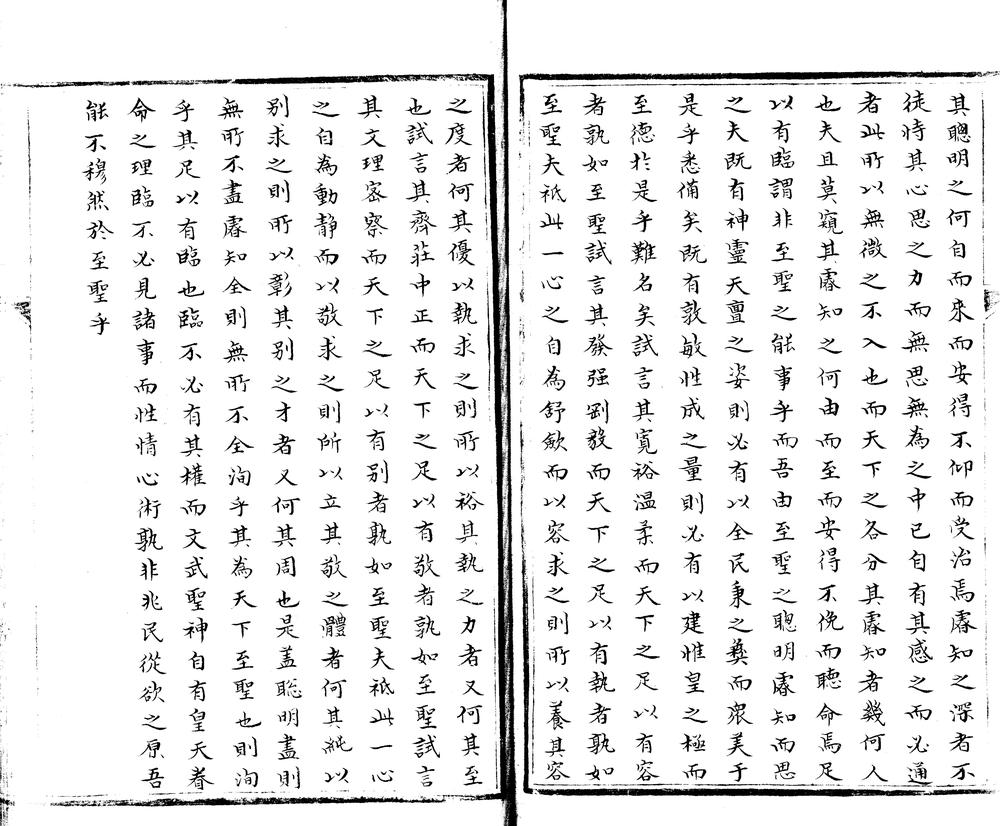 其聰明之何自而來而安得不仰而受治焉睿知之深者不
徒恃其心思之力而無思無為之中已自有其感之而必通
者此所以無微之不入也而天下之各分其睿知者幾何人
也夫且莫窺其睿知之何由而至而安得不俛而聽命焉足
以有臨謂非至聖之能事乎而吾由至聖之聰明睿知而思
之夫既有神靈天亶之姿則必有以全民秉之彝而眾美于
是乎悉備矣既有敦敏性成之量則必有以建惟皇之極而
至德於是乎難名矣試言其寬裕溫柔而天下之足以有容
者孰如至聖試言其發强剛毅而天下之足以有執者孰如
至聖夫祗此一心之自為舒歛而以容求之則所以養其容
之度者何其優以執求之則所以裕其執之力者又何其至
也試言其齊莊中正而天下之足以有敬者孰如至聖試言
其文理密察而天下之足以有别者孰如至聖夫祗此一心
之自為動靜而以敬求之則所以立其敬之體者何其純以
别求之則所以彰其别之才者又何其周也是蓋聰明盡則
無所不盡睿知全則無所不全洵乎其為天下至聖也則洵
乎其足以有臨也臨不必有其權而文武聖神自有皇天眷
命之理臨不必見諸事而性情心術孰非兆民從欲之原吾
能不穆然於至聖乎